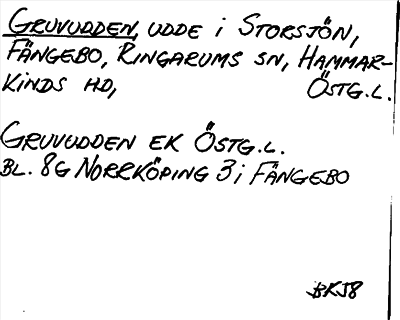 GRUVUDDEN, UDDE I STORSJÖN,
FÄNGEBO, RINGARUMS SN, HAMMAR-
KINDS HD, ÖSTG.L.
GRUVUDDEN EK ÖSTG.L.
BL. 8G NORRKÖPING 3i FÄNGEBO
BKJ8